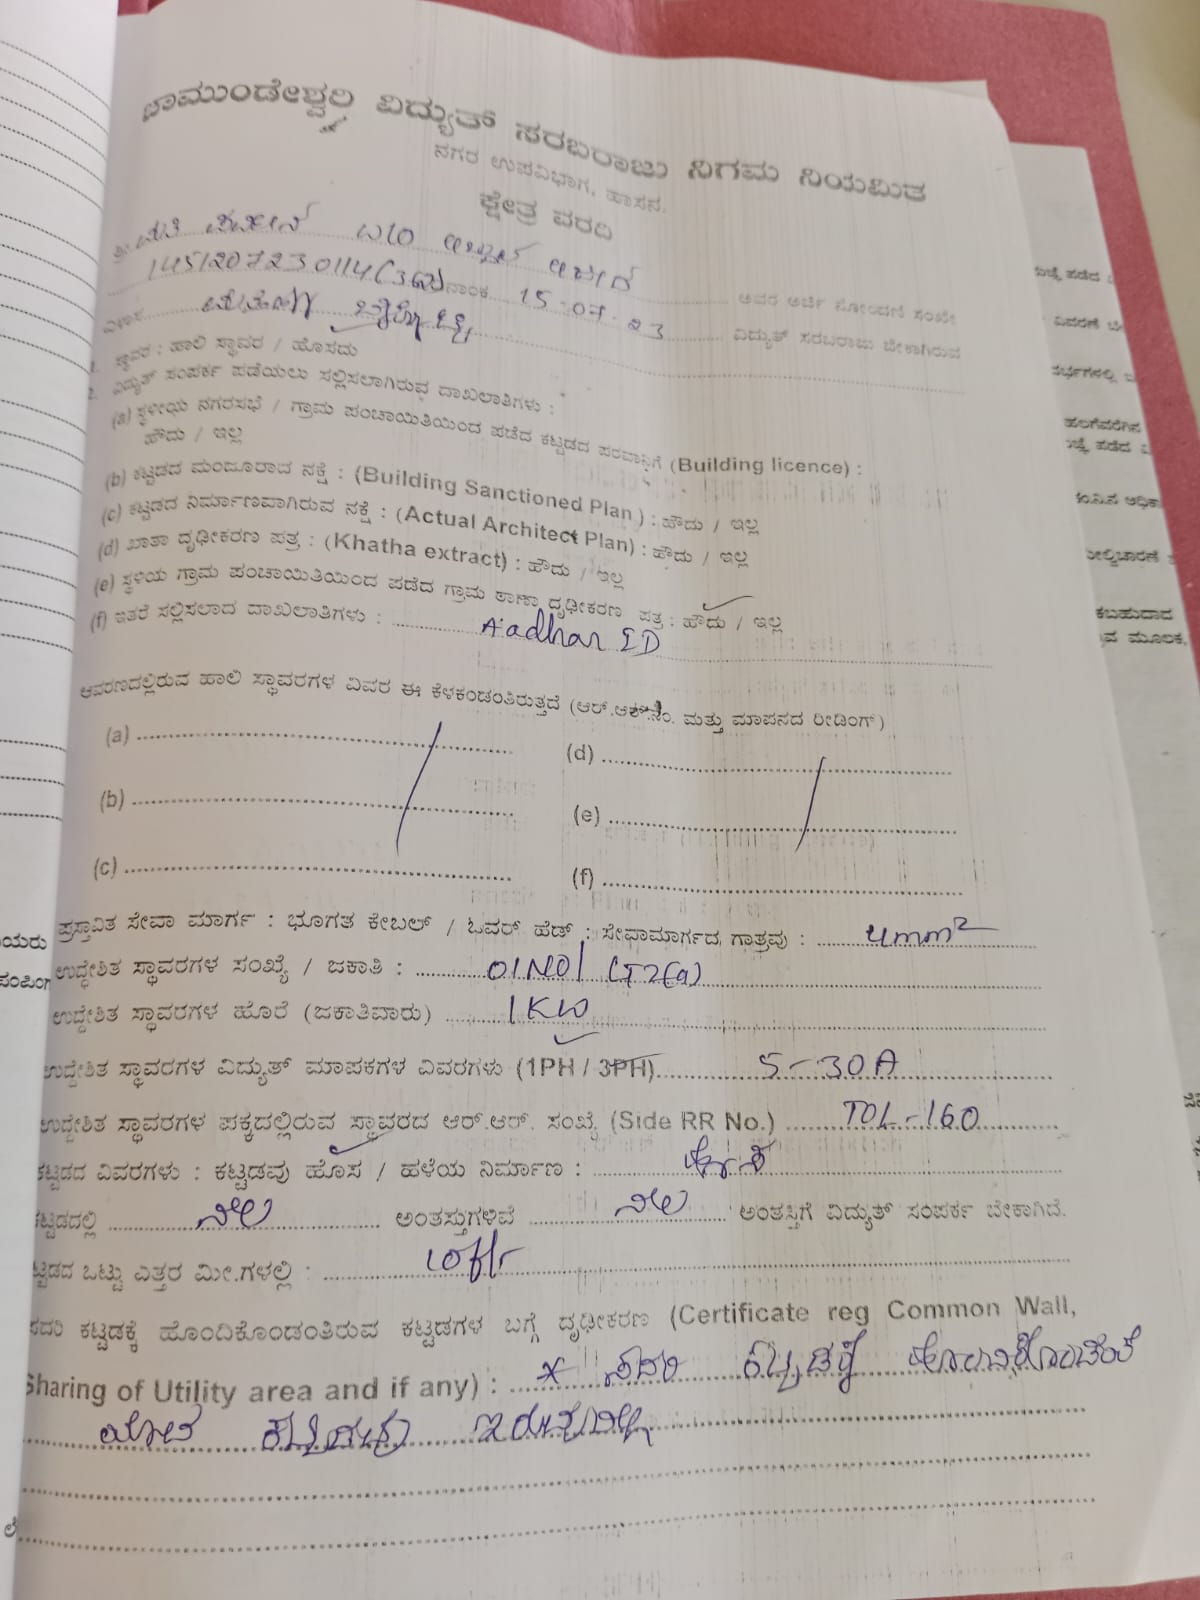 ಚಾಮುಂಡೇಶ್ವರಿ ವಿದ್ಯುತ್ ಸರಬರಾಜು ನಿಗಮ ನಿಯಮಿತ
ನಗರ ಉಪವಿಭಾಗ, ಹಾಸನ.
ಕ್ಷೇತ್ರ ವರದಿ
ಶ್ರೀ.
ಅವರ ಅರ್ಜಿ ನೋಂದಣಿ ಸಂಖ್ಯೇ
ದಿನಾಂಕ 15-07-23 ವಿದ್ಯುತ್ ಸರಬರಾಜು ಬೇಕಾಗಿರುವ
ವಿಳಾಸ
1. ಸ್ಥಾವರ : ಹಾಲಿ ಸ್ಥಾವರ / ಹೊಸದು
2. ವಿದ್ಯುತ್ ಸಂಪರ್ಕ ಪಡೆಯಲು ಸಲ್ಲಿಸಲಾಗಿರುವ ದಾಖಲಾತಿಗಳು :
(a) ಸ್ಥಳೀಯ ನಗರಸಭೆ / ಗ್ರಾಮ ಪಂಚಾಯಿತಿಯಿಂದ ಪಡೆದ ಕಟ್ಟಡದ ಪರವಾನ್ಗಿಗೆ (Building licence) :
ಹೌದು / ಇಲ್ಲ
(b) ಕಟ್ಟಡದ ಮಂಜೂರಾದ ನಕ್ಷೆ : (Building Sanctioned Plan ) : ಹೌದು / ಇಲ್ಲ
(c) ಕಟ್ಟಡದ ನಿರ್ಮಾಣವಾಗಿರುವ ನಕ್ಷೆ : (Actual Architect Plan) : ಹೌದು / ಇಲ್ಲ
(d) ಖಾತಾ ದೃಢೀಕರಣ ಪತ್ರ : (Khatha extract) : ಹೌದು / ಇಲ್ಲ
(e) ಸ್ಥಳಿಯ ಗ್ರಾಮ ಪಂಚಾಯಿತಿಯಿಂದ ಪಡೆದ ಗ್ರಾಮ ಠಾಣಾ ದೃಢೀಕರಣ ಪತ್ರ : ಹೌದು / ಇಲ್ಲ
(f) ಇತರೆ ಸಲ್ಲಿಸಲಾದ ದಾಖಲಾತಿಗಳು : Aadhar ID
ಆವರಣದಲ್ಲಿರುವ ಹಾಲಿ ಸ್ಥಾವರಗಳ ವಿವರ ಈ ಕೆಳಕಂಡಂತಿರುತ್ತದೆ (ಆರ್.ಆರ್.ನಂ. ಮತ್ತು ಮಾಪನದ ರೀಡಿಂಗ್)
(a) (d)
(b) (e)
(c) (f)
ಪ್ರಸ್ತಾವಿತ ಸೇವಾ ಮಾರ್ಗ : ಭೂಗತ ಕೇಬಲ್ / ಓವರ್ ಹೆಡ್ : ಸೇವಾಮಾರ್ಗದ ಗಾತ್ರವು : 4mm²
ಉದ್ಧೇಶಿತ ಸ್ಥಾವರಗಳ ಸಂಖ್ಯೆ / ಜಕಾತಿ :
ಉದ್ದೇಶಿತ ಸ್ಥಾವರಗಳ ಹೊರೆ (ಜಕಾತಿವಾರು) 1KW
ಉದ್ದೇಶಿತ ಸ್ಥಾವರಗಳ ವಿದ್ಯುತ್ ಮಾಪಕಗಳ ವಿವರಗಳು (1PH / 3PH) 5-30A
ಉದ್ದೇಶಿತ ಸ್ಥಾವರಗಳ ಪಕ್ಕದಲ್ಲಿರುವ ಸ್ಥಾವರದ ಆರ್.ಆರ್. ಸಂಖ್ಯೆ (Side RR No.) TOL-160
ಕಟ್ಟಡದ ವಿವರಗಳು : ಕಟ್ಟಡವು ಹೊಸ / ಹಳೆಯ ನಿರ್ಮಾಣ : ಹೊಸ
ಕಟ್ಟಡದಲ್ಲಿ ನೆಲ ಅಂತಸ್ತುಗಳಿವೆ ನೆಲ ಅಂತಸ್ತಿಗೆ ವಿದ್ಯುತ್ ಸಂಪರ್ಕ ಬೇಕಾಗಿದೆ.
ಕಟ್ಟಡದ ಒಟ್ಟು ಎತ್ತರ ಮೀ.ಗಳಲ್ಲಿ : 10ft
ಸದರಿ ಕಟ್ಟಡಕ್ಕೆ ಹೊಂದಿಕೊಂಡಂತಿರುವ ಕಟ್ಟಡಗಳ ಬಗ್ಗೆ ದೃಢೀಕರಣ (Certificate reg Common Wall,
Sharing of Utility area and if any) : * ಸದರಿ ಕಟ್ಟಡಕ್ಕೆ ಹೊಂದಿಕೊಂಡಂತೆ
ಯಾವ ಕಟ್ಟಡವು ಇರುವುದಿಲ್ಲ